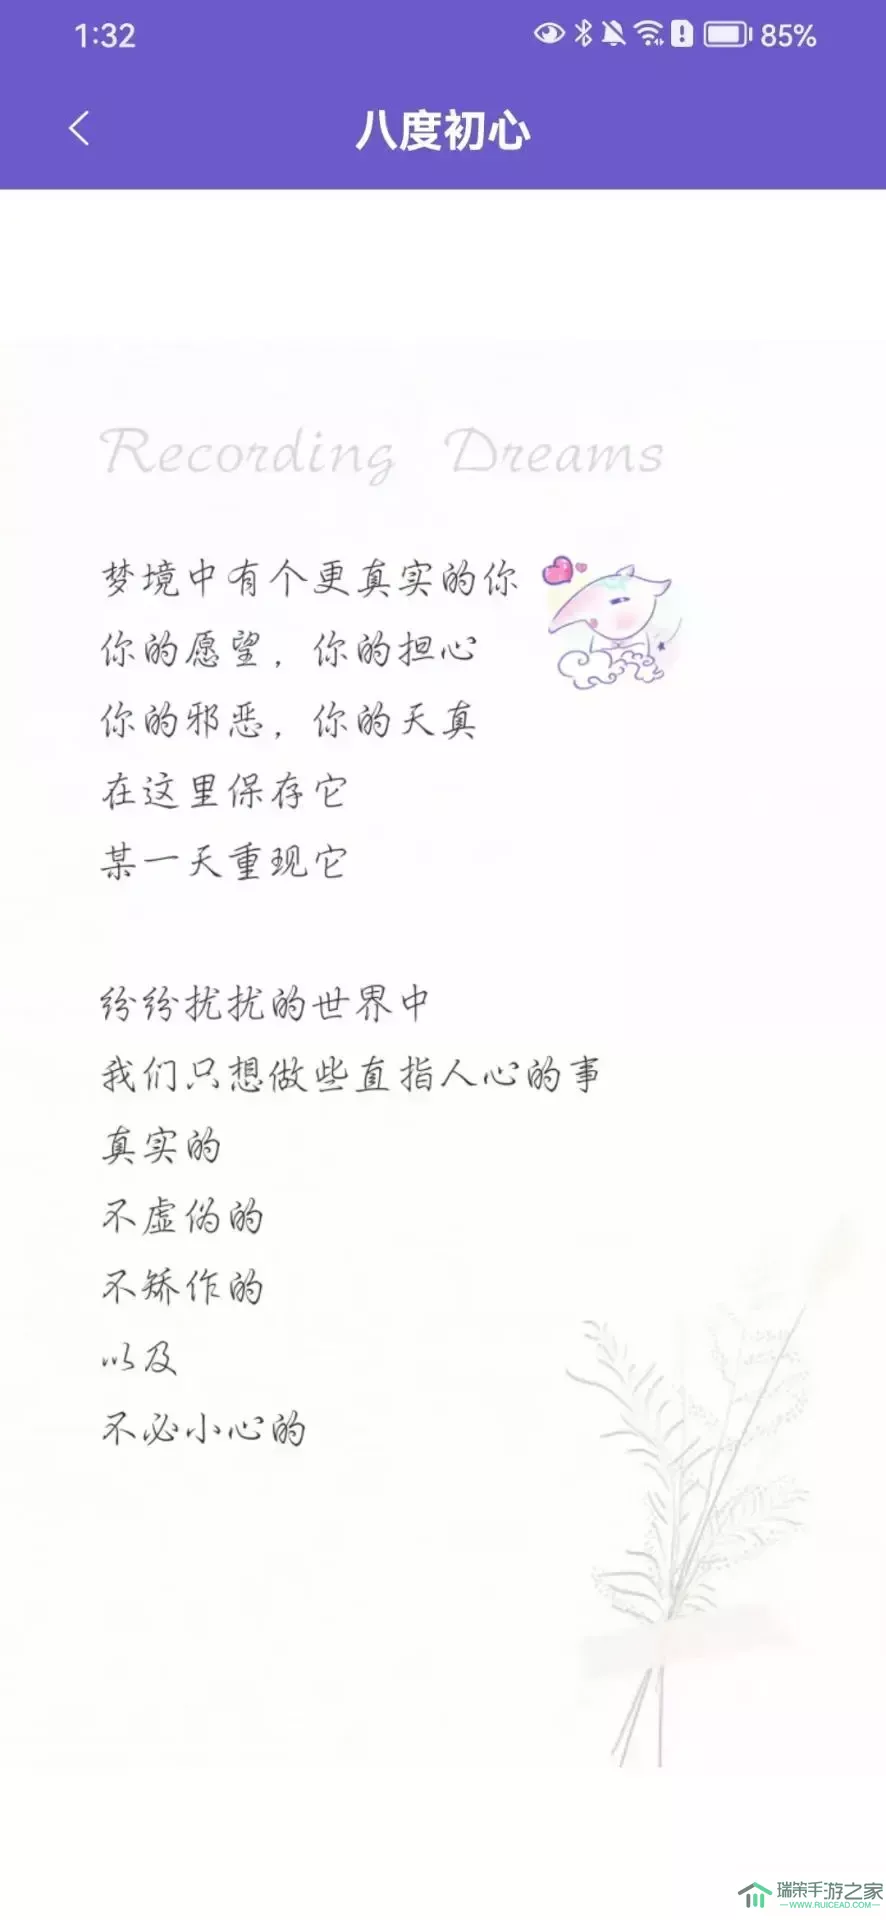 1:32
85%
八度初心
Recording Dreams
梦境中有个更真实的你
你的愿望，你的担心
你的邪恶，你的天真
在这里保存它
某一天重现它
纷纷扰扰的世界中
我们只想做些直指人心的事
真实的
不虚伪的
不矫作的
以及
不必小心的
瑞策手游之家
WWW.RUICEAD.COM